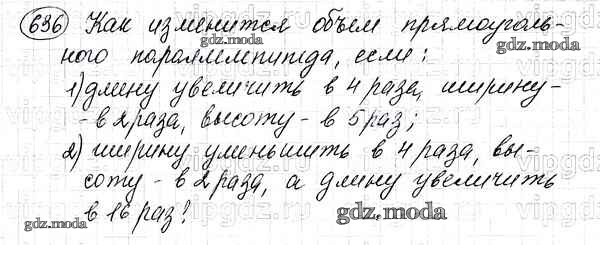 636 Как изменится объем прямоуголь-
ного параллелепипеда, если:
gdz.moda
gdz.moda
1) длину увеличить в 4 раза, ширину -
- в 2 раза, высоту - в 5 раз;
2) ширину уменьшить в 4 раза, вы-
соту - в 2 раза, а длину увеличить
в 16 раз?
gdz.moda
gdz.moda